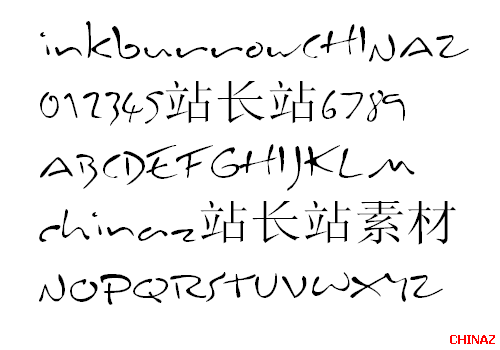 inkburrowCHINAZ
012345站长站6789
ABCDEFGHIJKLM
chinaz站长站素材
NOPQRSTUVWXYZ
CHINAZ